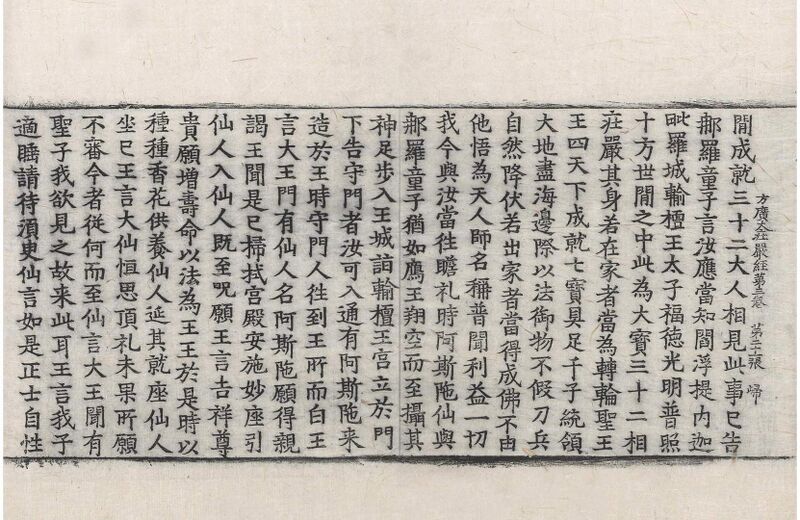 方廣大莊嚴經第三卷 歸
閒成就三十二大人相見此事已告
郍羅童子言汝應當知閻浮提内迦
毗羅城輸檀王太子福德光明普照
十方世閒之中此為大寶三十二相
莊嚴其身若在家者當為轉輪聖王
王四天下成就七寶具足千子統領
大地盡海邊際以法御物不假刀兵
自然降伏若出家者當得成佛不由
他悟為天人師名稱普聞利益一切
我今與汝當往瞻礼時阿斯陁仙與
郍羅童子猶如鴈王翔空而至攝其
神足步入王城詣輸檀王宫立於門
下告守門者汝可入通有阿斯陁来
造於王時守門人往到王所而白王
言大王門有仙人名阿斯陁願得親
謁王聞是已掃拭宫殿安施妙座引
仙人入仙人既至呪願王言吉祥尊
貴願增壽命以法為王王於是時以
種種香花供養仙人延其就座仙人
坐已王言大仙恒思頂礼未果所願
不審今者從何而至仙言大王聞有
聖子我欲見之故来此耳王言我子
適睡請待須臾仙言如是正士自性